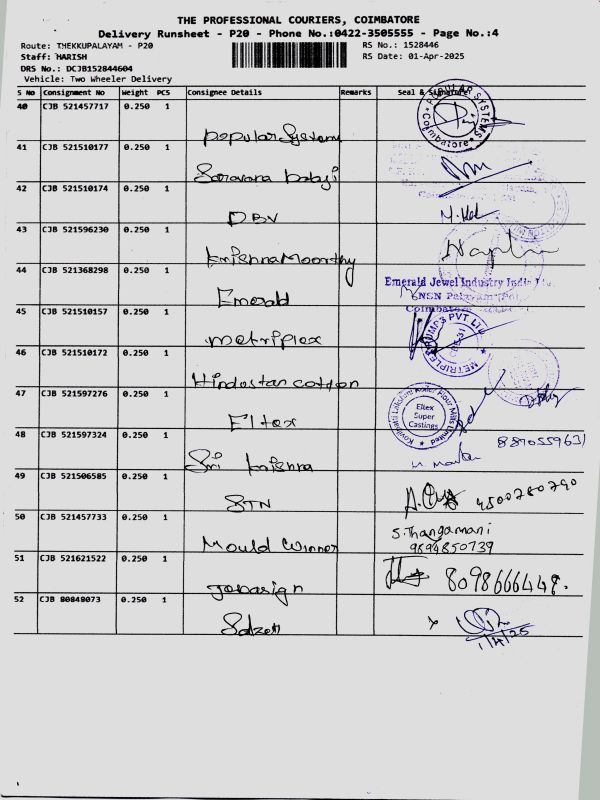 THE PROFESSIONAL COURIERS, COIMBATORE
Delivery Runsheet - P20 - Phone No.:0422-3505555 - Page No.:4
Route: THEKKUPALAYAM - P20 RS No.: 1528446
Staff: HARISH RS Date: 01-Apr-2025
DRS No.: DCJB152844604
Vehicle: Two Wheeler Delivery
S No Consignment No Weight PCS Consignee Details Remarks Seal & Signature
40 CJB 521457717 0.250 1
Popular Systems
POPULAR SYSTEMS Coimbatore
41 CJB 521510177 0.250 1
Saravana balaji
42 CJB 521510174 0.250 1
DBV
43 CJB 521596230 0.250 1
Krishna Moorthy
44 CJB 521368298 0.250 1
Emerald
Emerald Jewel Industry India
SNSN
Coimbatore
45 CJB 521510157 0.250 1
metriplex
METRIPLEX PUMPS PVT LTD
46 CJB 521510172 0.250 1
Hindostan cotton
47 CJB 521597276 0.250 1
Eltex
Eltex
Super
Castings
48 CJB 521597324 0.250 1
Sri Krishna
49 CJB 521506585 0.250 1
STN
4500780790
50 CJB 521457733 0.250 1
Mould Winner
S. Thangamani
9694850739
51 CJB 521621522 0.250 1
8098666448.
52 CJB 80848073 0.250 1
Salzer
1/4/25